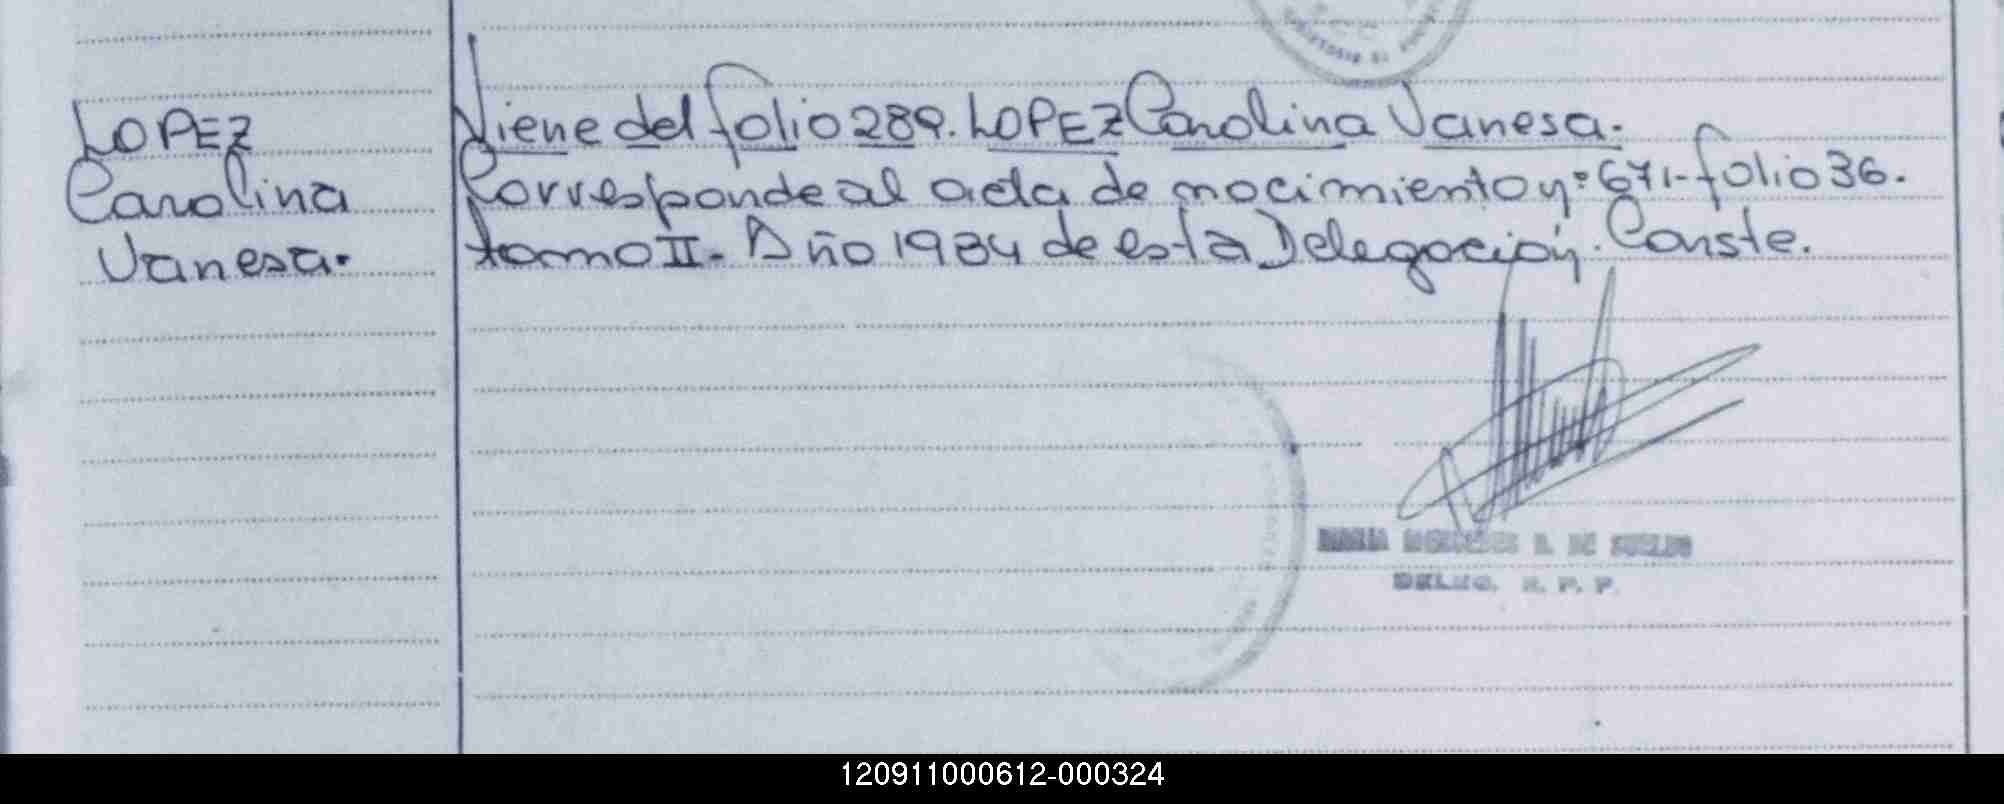 LOPEZ
Carolina
Vanesa.
Viene del folio 289. LOPEZ Carolina Vanesa.
Corresponde al acta de nacimiento nº 671-folio 36.
tomo II- Año 1984 de esta Delegación. Conste.
MARIA MERCEDES DE
DELEG. R. P. P.
120911000612-000324